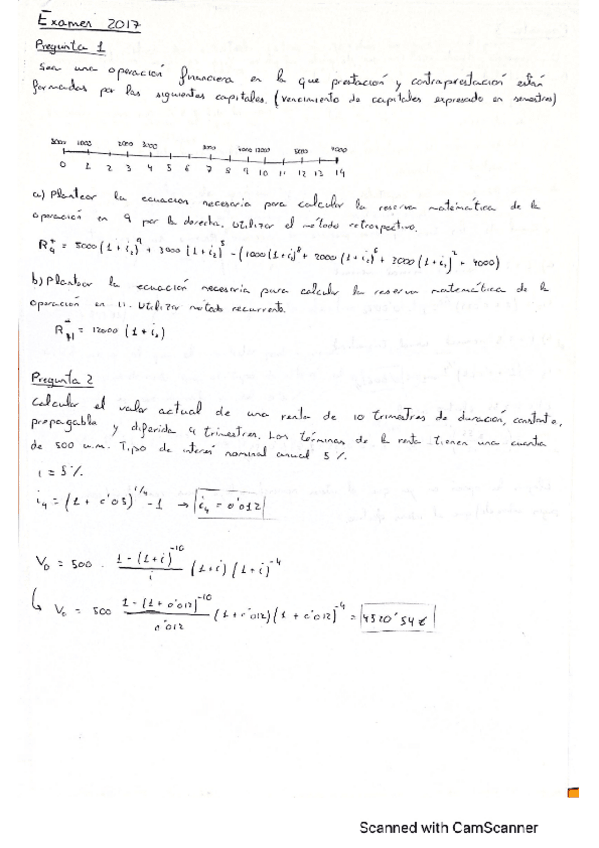 Examen 2017
Pregunta 1
Sea una operación financiera en la que prestación y contraprestación están
formadas por los siguientes capitales. (vencimiento de capitales expresado en semestres)
5000 1000 2000 3000 3000 4000 12000 5000 7000
0 1 2 3 4 5 6 7 8 9 10 11 12 13 14
a) Plantear la ecuación necesaria para calcular la reserva matemática de la
operación en 9 por la derecha. Utilizar el método retrospectivo.
R₉⁺ = 5000 (1+i₂)⁹ + 3000 (1+i₂)⁵ - (1000 (1+i₂)⁸ + 2000 (1+i₂)⁶ + 3000 (1+i₂)² + 4000)
b) Plantear la ecuación necesaria para calcular la reserva matemática de la
operación en 11. Utilizar método recurrente.
= 12000 (1+i₂)
Pregunta 2
Calcular el valor actual de una renta de 10 trimestres de duración, constante,
prepagable y diferida 4 trimestres. Los términos de la renta tienen una cuantía
de 500 u.m. Tipo de interés nominal anual 5%.
i = 5%
i₄ = (1 + 0'05)^1/4 - 1 → i₄ = 0'012
V₀ = 500 · 1-(1+i)⁻¹⁰ / i (1+i) (1+i)⁻⁴
↳ V₀ = 500 1-(1+0'012)⁻¹⁰ / 0'012 (1+0'012) (1+0'012)⁻⁴ = 4520'54€
Scanned with CamScanner